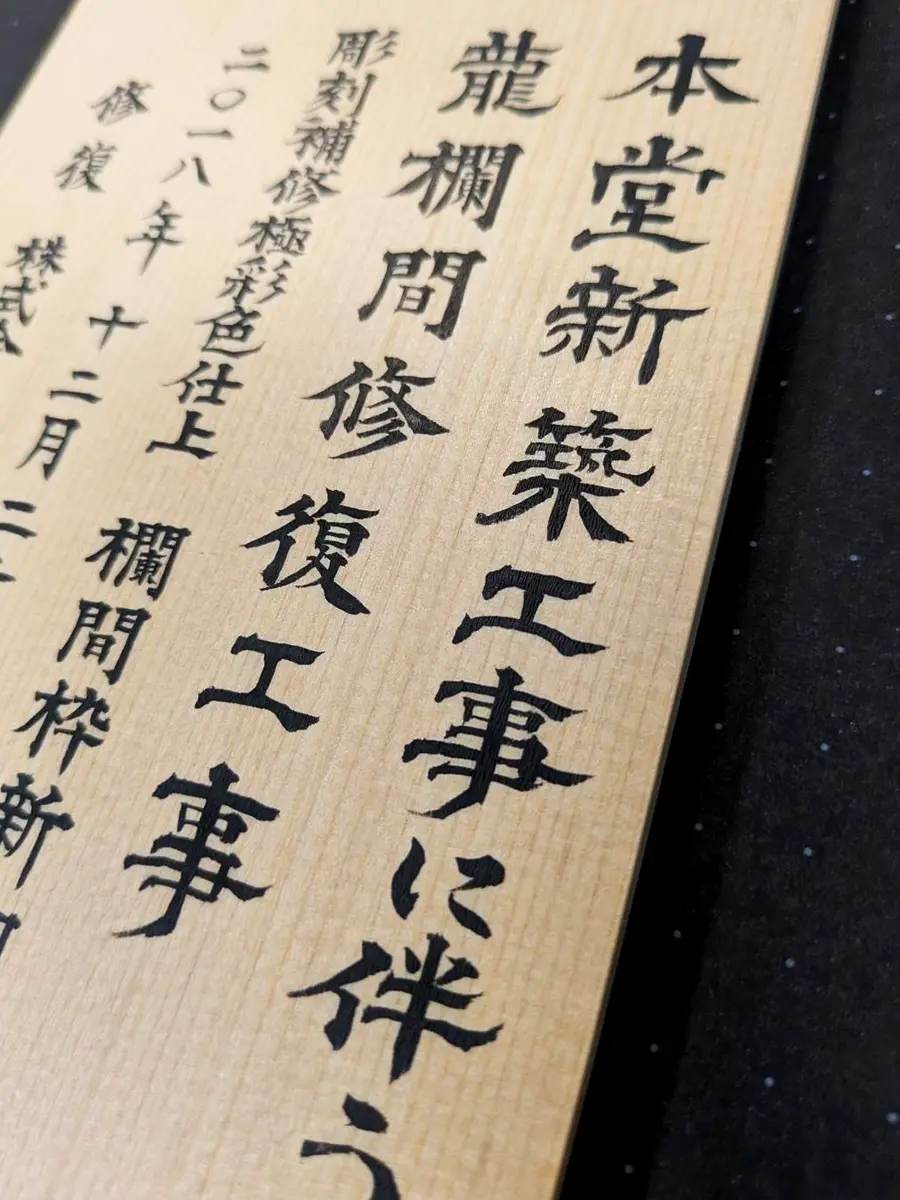 本堂新築工事に伴う
龍欄間修復工事
彫刻補修極彩色仕上 欄間枠新
二〇一八年 十二月 二
修復 株式会